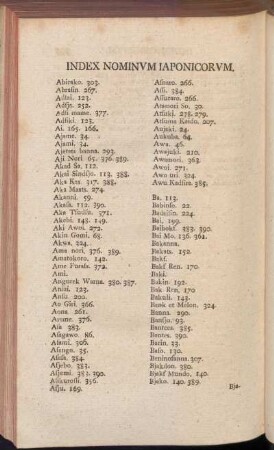 INDEX NOMINVM IAPONICORVM.
Abirako. 303.
Abrasin. 267.
Adsai. 123.
Adsje. 252.
Adsi mame. 377.
Adsiki. 123.
Ai. 165. 166.
Ajame. 34.
Ajami. 34.
Ajetata banna. 293.
Aji Nori 65. 376. 389.
Akad Sa. 112.
Akai Sindsjo. 113. 388.
Aka Kas 317. 388.
Aka Maats. 274.
Akanni. 59.
Akasa. 112. 390.
Aka Tsudsi. 371.
Akebi. 148. 149.
Aki Awoi. 272.
Akin Gomi. 68.
Akwa. 224.
Ama nori, 376. 389.
Amatokoro, 142.
Ame Furasi. 372.
Ami.
Angurek Warna. 380. 387.
Anisi. 123.
Anso. 200.
Ao Giri. 366.
Aona. 261.
Arame. 376.
Asa 383.
Asagawo. 86.
Asami. 306.
Asango. 35.
Asida. 384.
Asjebo. 383.
Asjemi. 383. 390.
Askurosi. 356.
Asju. 189.
Assam. 266.
Assi. 384.
Assurano. 266.
Atamori So. 30.
Atsuki. 278. 279.
Atsuma Kaido. 207.
Aujaki. 24.
Aukuba. 64.
Awa. 46.
Awajuki. 210.
Awamori. 363.
Awoi. 271.
Awo uri. 324.
Awu Kadsiro. 385.
Ba. 113.
Babiofo. 22.
Badaiso. 224.
Bai. 199.
Baibaka. 383. 390.
Bai Mo. 136. 362.
Bakanna.
Baksta. 152.
Baksf.
Baksf Ren. 170.
Bakï.
Bakin. 192.
Bak Ren. 170
Bakuli. 143.
Bank et Molon. 324.
Banna. 290.
Bansjo. 93.
Banreea. 385.
Bantes. 390.
Barin. 33.
Baso. 130.
Benimosanus. 307.
Bjakdan. 380.
Bjaksf Mundo. 140.
Bjako. 140. 389.
Bja-